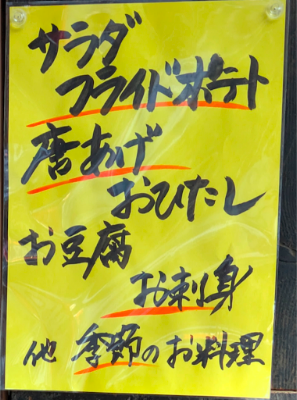 サラダ
フライドポテト
唐あげ
おひたし
お豆腐
お刺身
他 季節のお料理